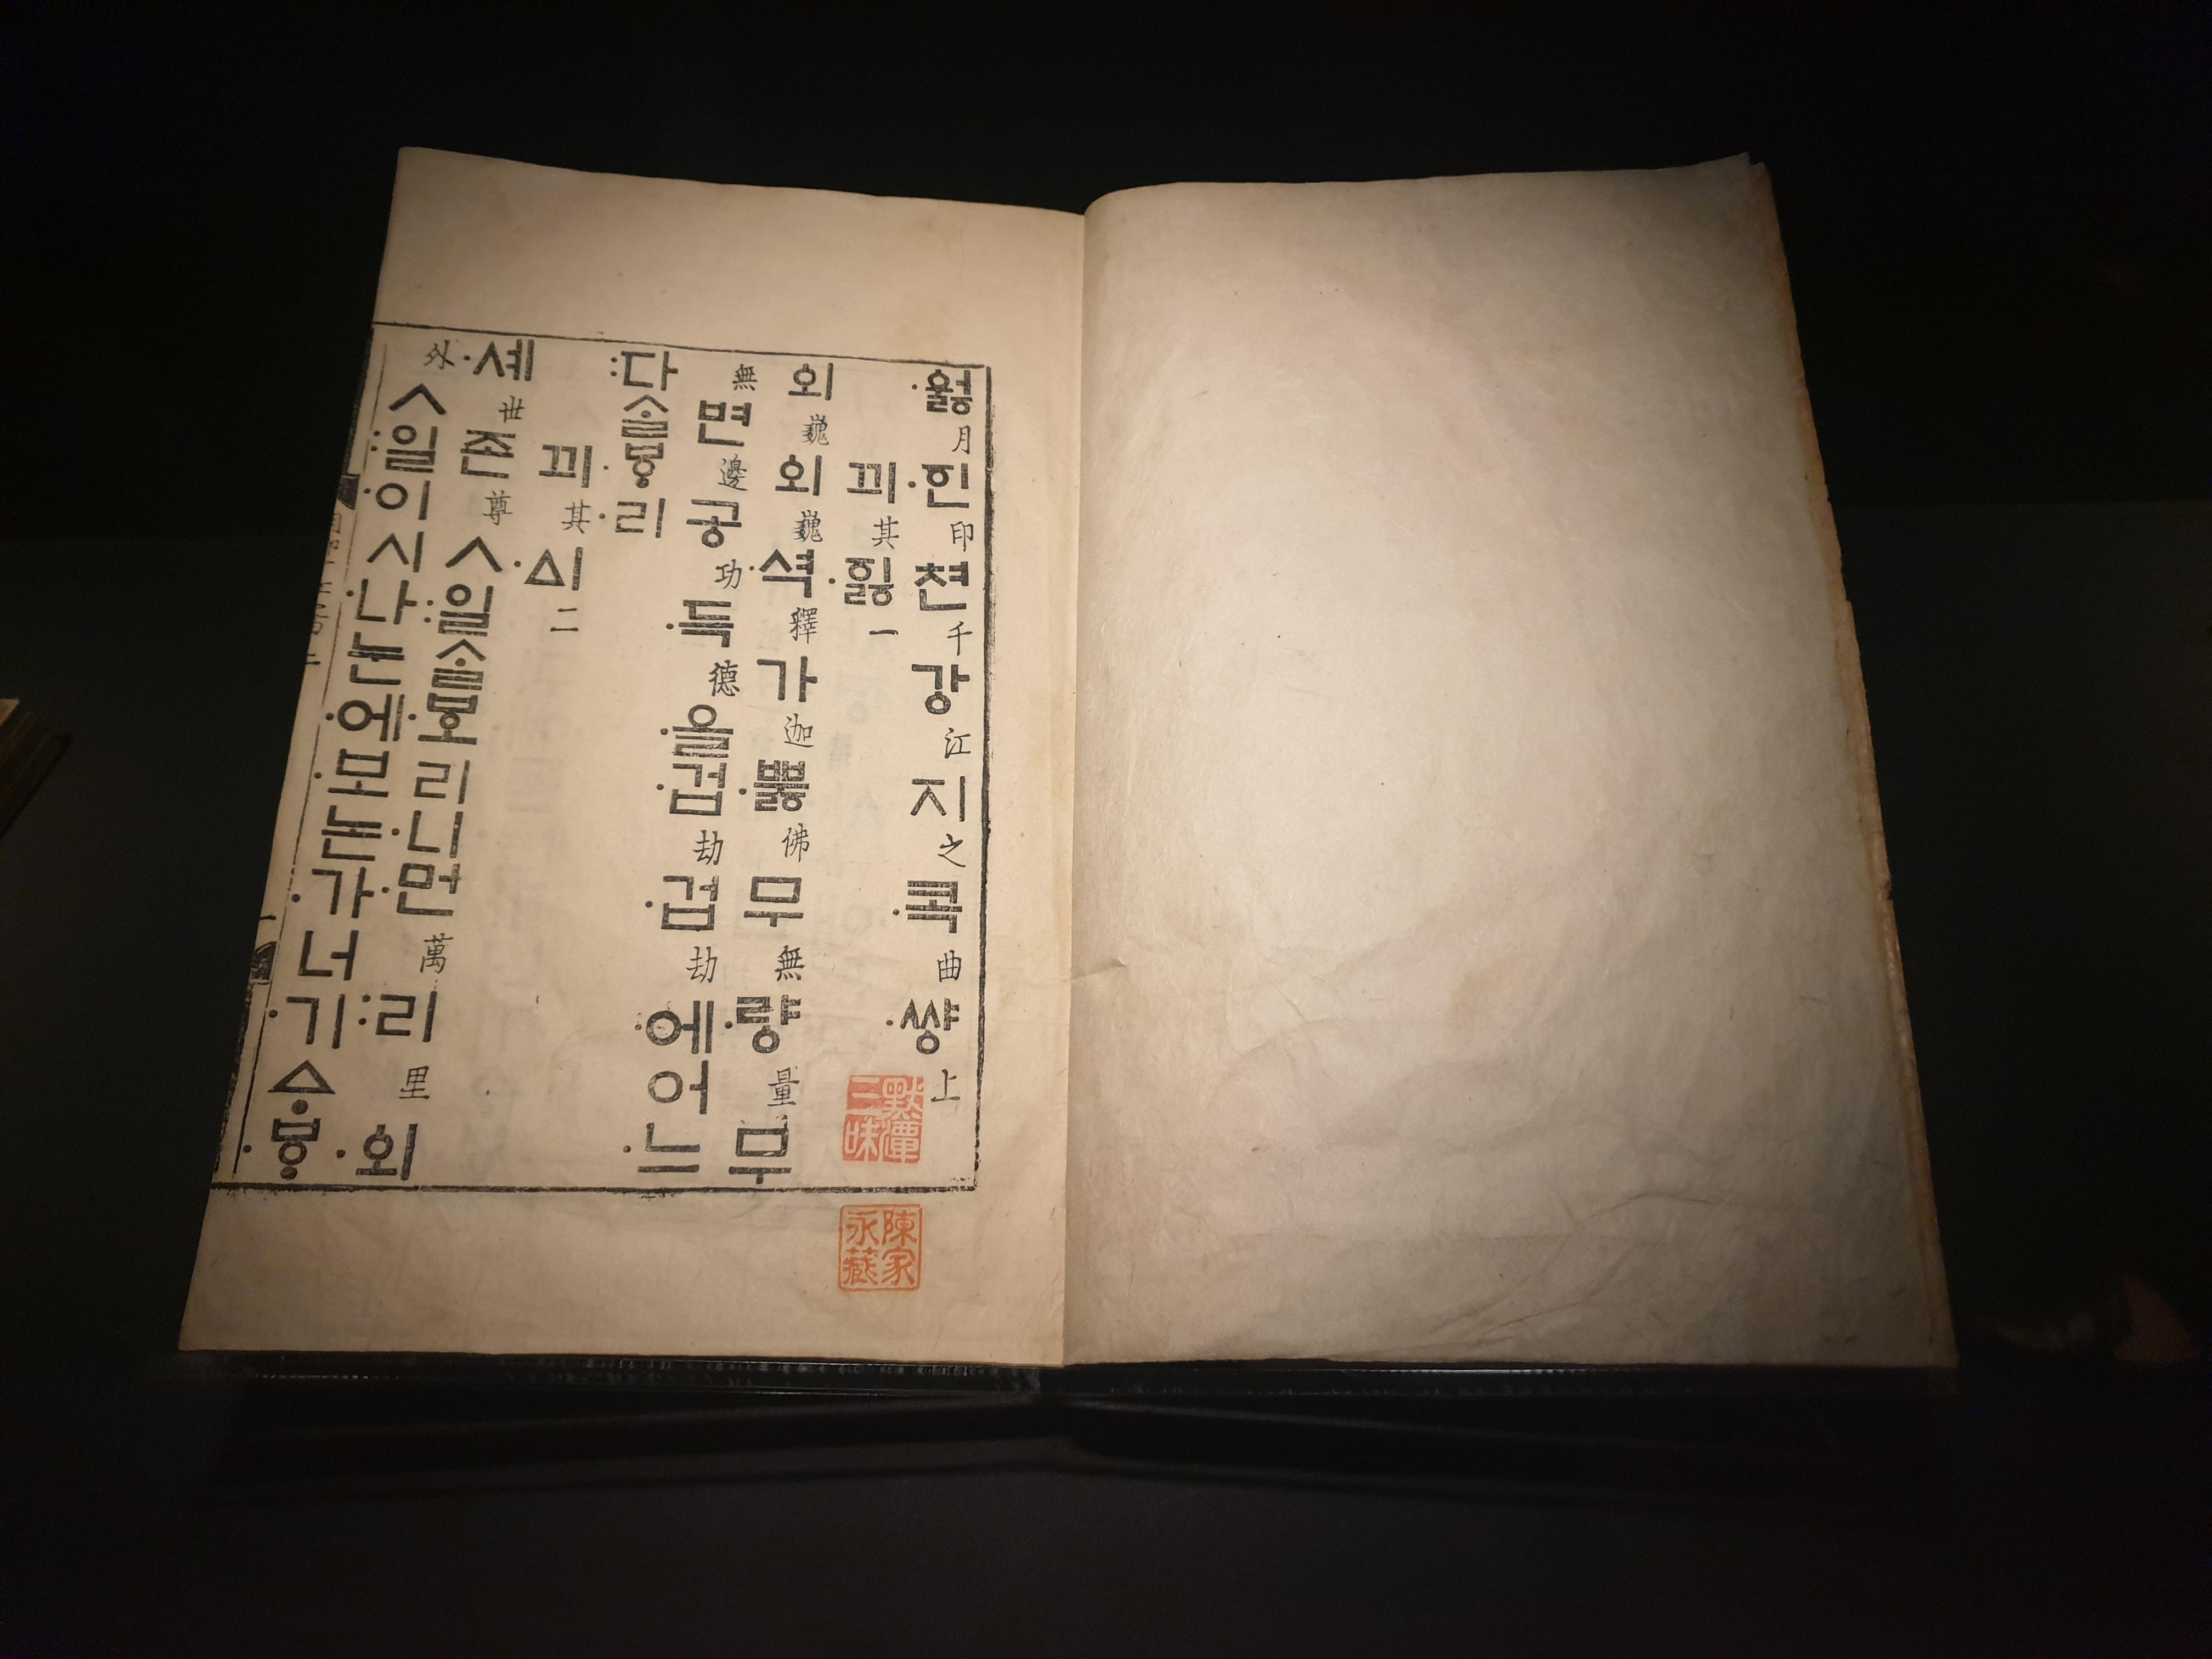 ·웛月·ᅙᅵᆫ印쳔千강江지之·콕曲·썅上
끠其·ᅙᅵᇙ一
외巍외巍·셕釋가迦·뿛佛무無·량量무
無변邊공功·득德·을·겁劫·겁劫·에어·느
:다ᄉᆞᆯᄫᆞ·리
끠其·ᅀᅵ二
·셰世존尊ㅅ:일ᄉᆞᆯ·ᄫᅩ리·니·먼萬:리里·외
外ㅅ:일·이시·나·눈·에·보논·가너·기ᅀᆞ·ᄫᆞ
默潭三昧
陳家永藏